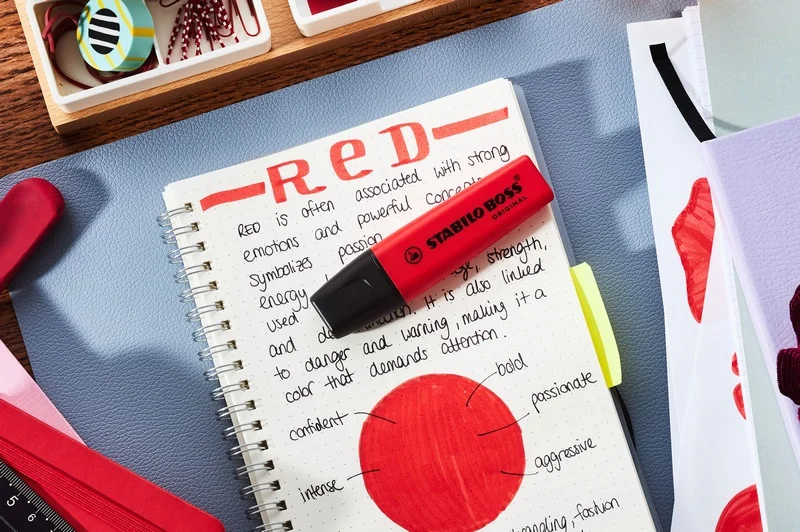 RED
RED is often associated with strong
emotions and powerful
symbolizes passion
energy
strength,
used
It is also linked
and
to danger and warning, making it a
color that demands attention.
STABILO BOSS
ORIGINAL
bold
confident
passionate
intense
aggressive
fashion
5
6